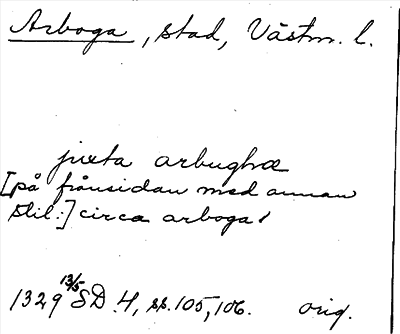 Arboga, stad, Västm. l.
juxta arbughæ
[på frånsidan med annan
stil:] circa arboga
1329 13/5 SD 4, ss. 105, 106. orig.